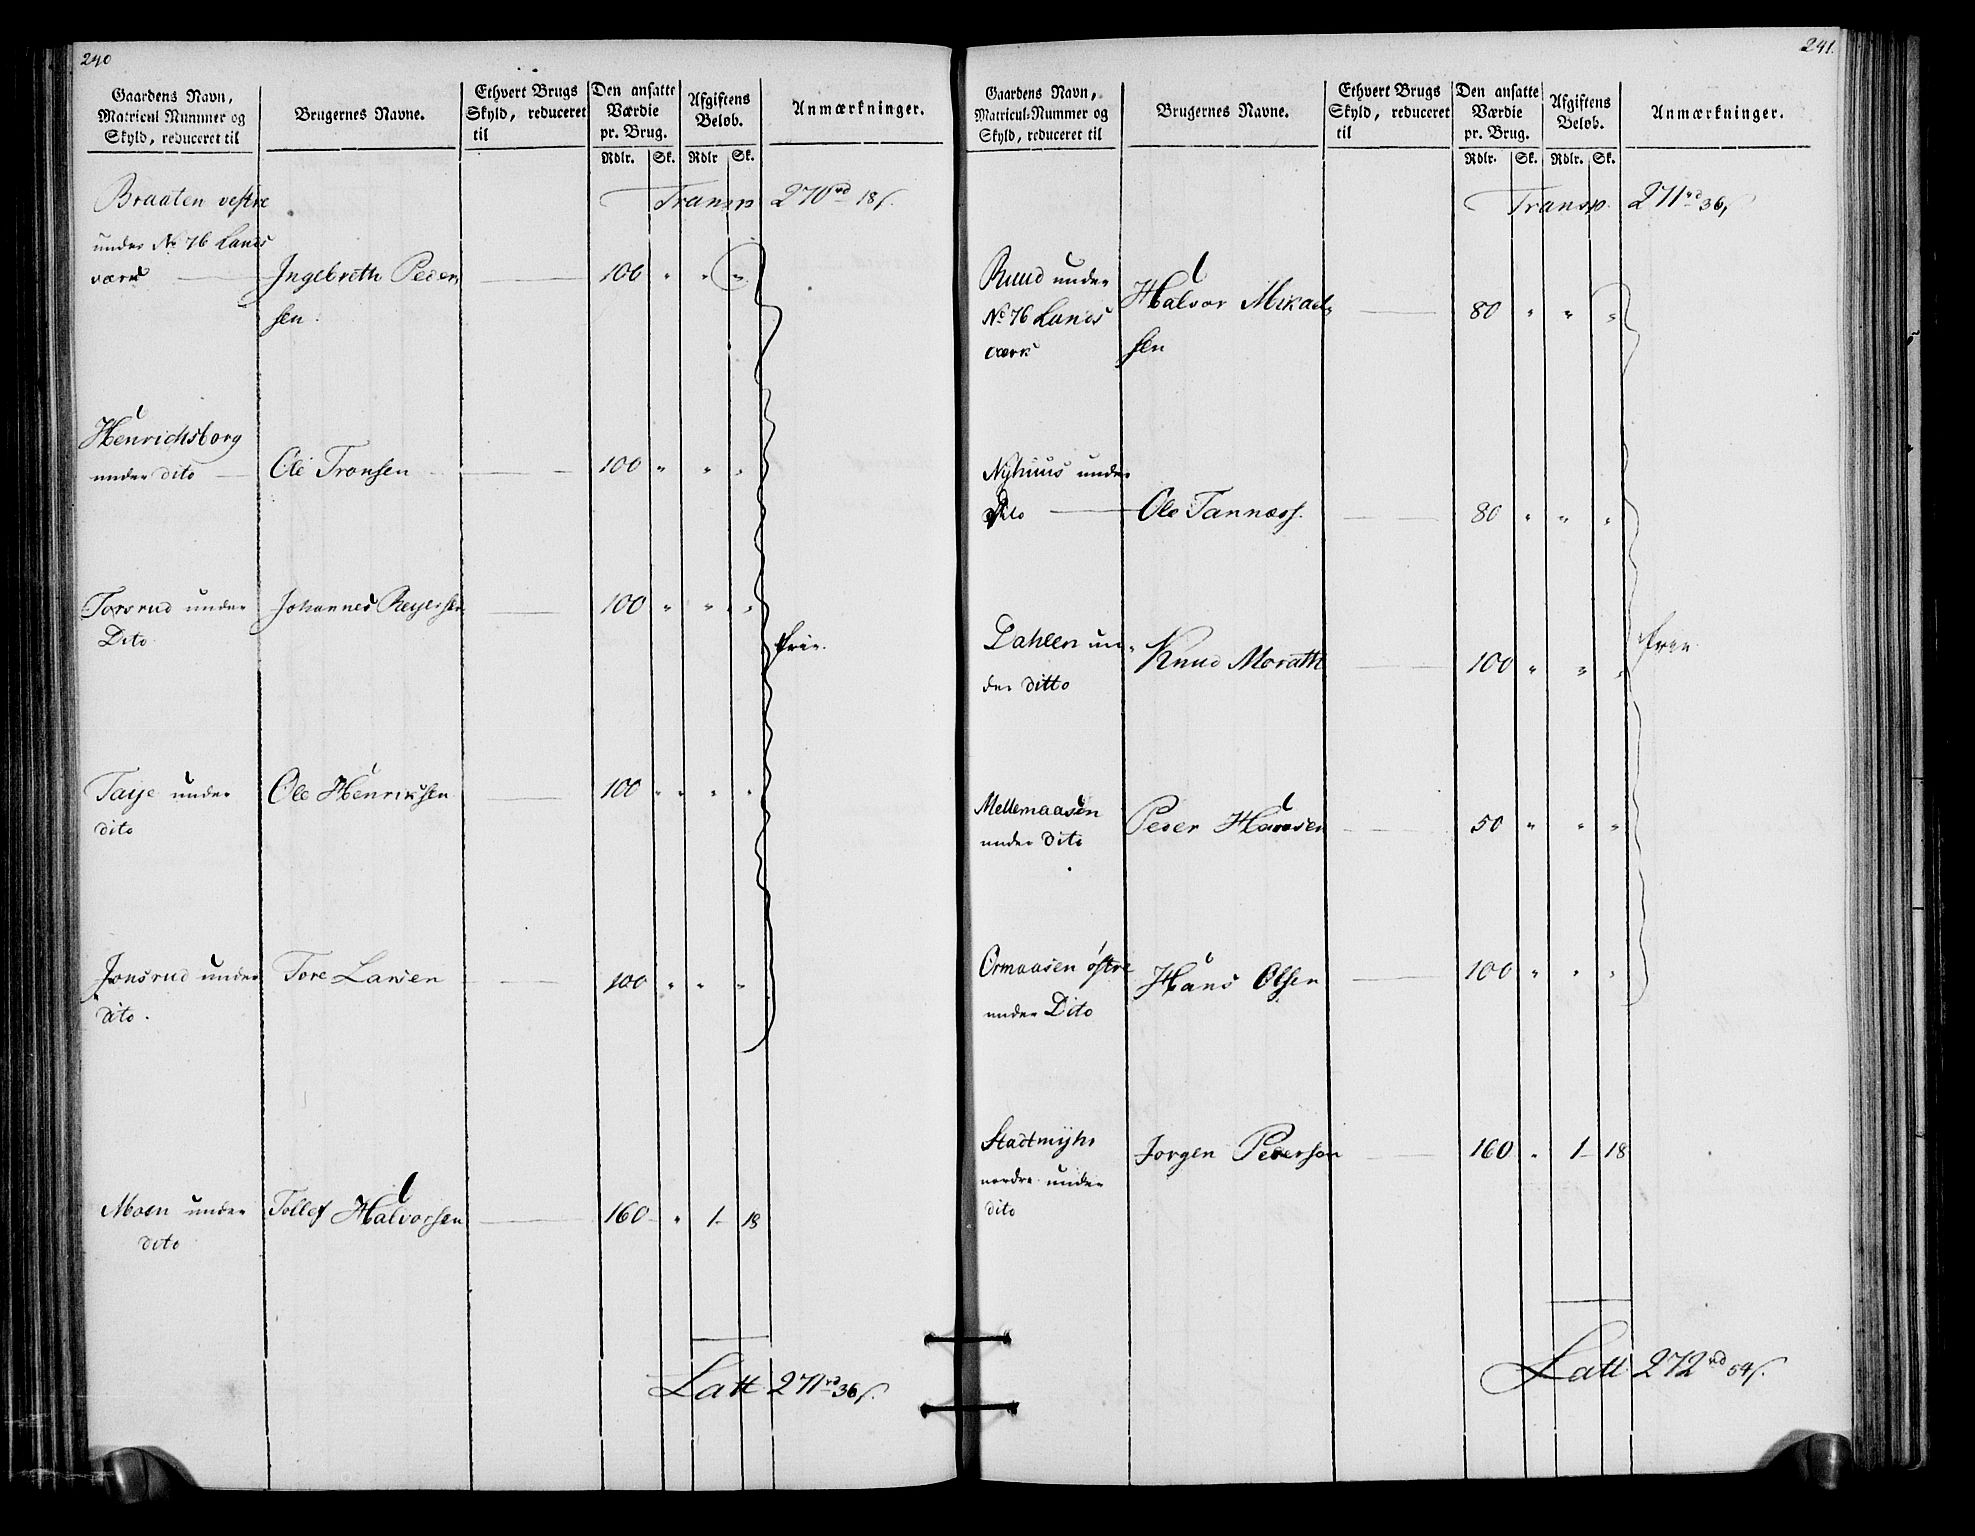 240
Gaardens Navn,
Matricul Nummer og
Skyld, reduceret til
Brugernes Navne.
Ethvert Brugs
Skyld, reduceret
til
Den ansatte
Værdie
pr. Brug.
Afgiftens
Beløb.
Anmærkninger.
Rdlr. Sk. Rdlr Sk.
Braaten vestre
Transp 270rd 18s.
under No 76 Lands
værk Ingebreth Peder 100 " " "
sen.
Henrichsborg
under dito Ole Tronsen 100 " " "
Torsrud under Johannes Reyersen 100 " " "
Dito
frie.
Taije under Ole Henriksen 100 " " "
dito
Jonsrud under Tore Larsen 100 " " "
dito.
Moen under Tollef Halvorsen 160 " 1 18
dito
Latt 271rd 36s.
241.
Gaardens Navn,
Matricul-Nummer og
Skyld, reduceret til
Brugernes Navne.
Ethvert Brugs
Skyld, reduceret
til
Den ansatte
Værdie
pr. Brug.
Afgiftens
Beløb.
Anmærkninger.
Rdlr. Sk. Rdlr. Sk.
Transp. 271rd 36s
Ruud under
No 76 Lands Halvor Mikael 80 " " "
værk sen
Nyhuus under
Dito Ole Tannæss. 80 " " "
Dahlen un Knud Morath 100 " " "
der ditto
frie
Mellemaasen Peder Hansen 50 " " "
under dito
Ormaasen østre Hans Olsen 100 " " "
under Dito
Stadtmyhr Jorgen Pedersen 160 " 1 18
nordre under
dito
Latt 272rd 54s.